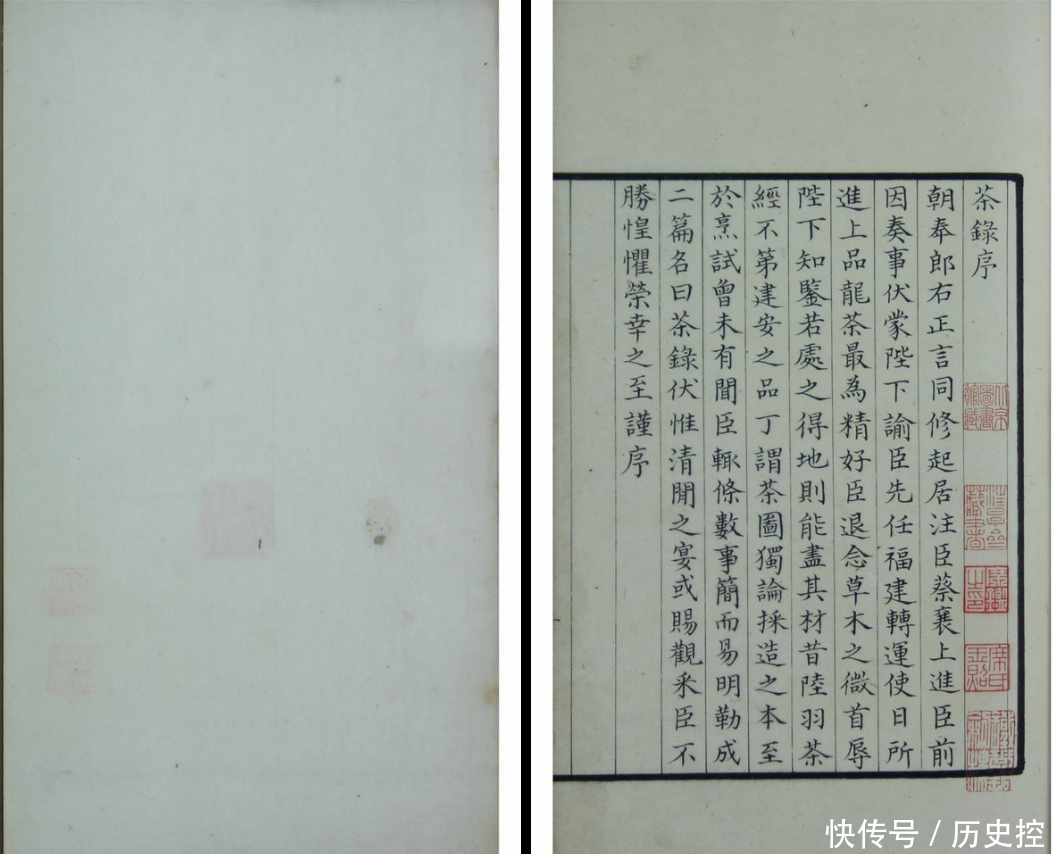 茶錄序
朝奉郎右正言同修起居注臣蔡襄上進臣前
因奏事伏蒙陛下諭臣先任福建轉運使日所
進上品龍茶最為精好臣退念草木之微首辱
陛下知鑒若處之得地則能盡其材昔陸羽茶
經不第建安之品丁謂茶圖獨論採造之本至
於烹試曾未有聞臣輙條數事簡而易明勒成
二篇名曰茶錄伏惟清閒之宴或賜觀釆臣不
勝惶懼榮幸之至謹序
快传号 / 历史控